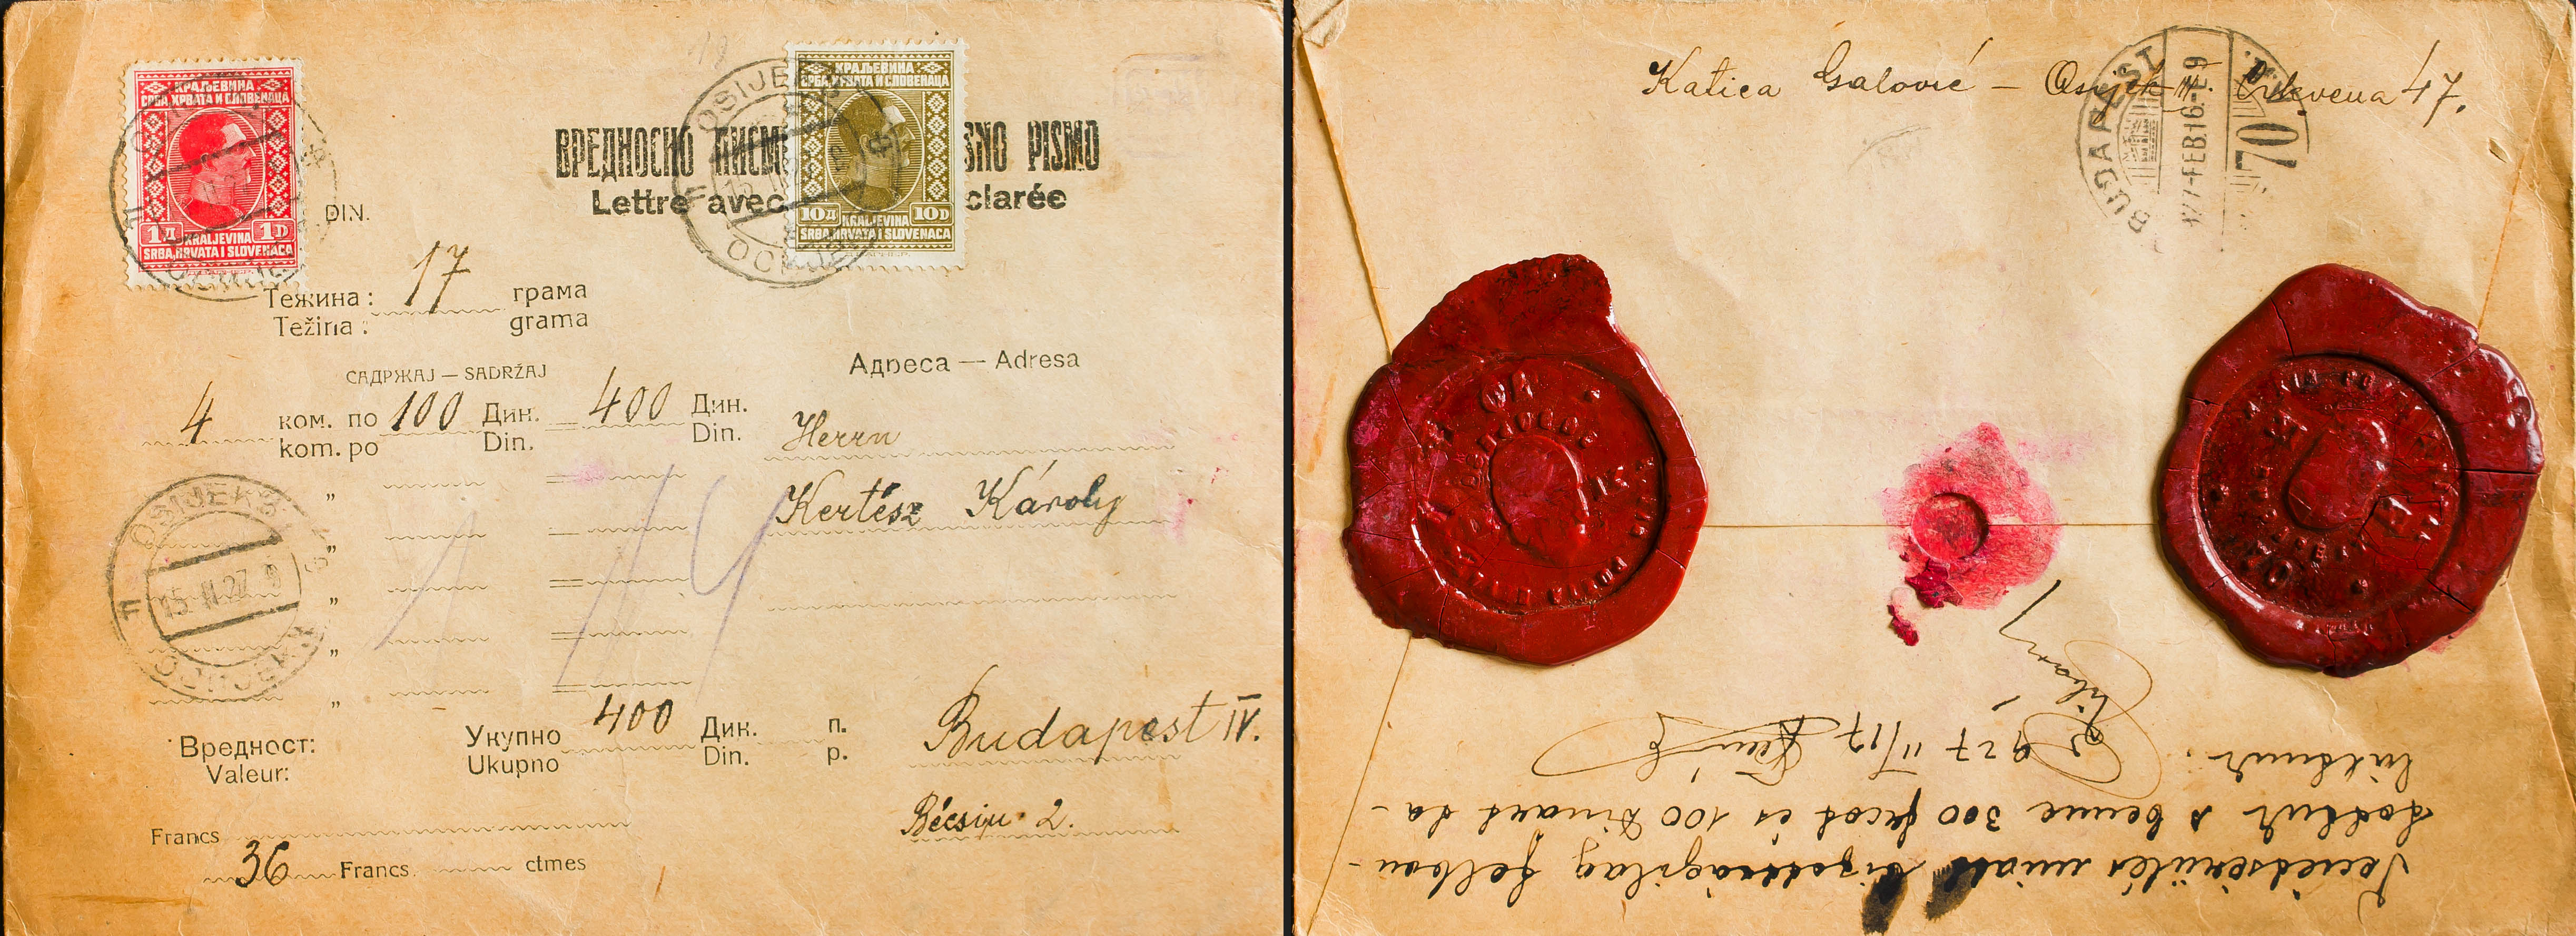 КРАЉЕВИНА
СРБА, ХРВАТА И СЛОВЕНАЦА
1Д KRALJEVINA 1D
SRBA, HRVATA I SLOVENACA
КРАЉЕВИНА
СРБА, ХРВАТА И СЛОВЕНАЦА
10Д KRALJEVINA 10D
SRBA, HRVATA I SLOVENACA
OSIJEK
ОСИЈЕК
ВРЕДНОСНО ПИСМ SNO PISMO
Lettre avec clarée
DIN.
Тежина: 17 грама
Težina: grama
САДРЖАЈ — SADRŽAJ
Адреса — Adresa
4 ком. по 100 Дин. = 400 Дин.
kom. po Din. Din.
Herrn
Kertész Károly
OSIJEK
15 II 27 9
ОСИЈЕК
Вредност: Укупно 400 Дин. п.
Valeur: Ukupno Din. p.
Budapest IV.
Bécsiu. 2.
Francs
36 Francs ctmes
Katica Galović — Osijek III. 47.
BUDAPEST
927 FEB.16 - É.9
70
felbon-
s benne 300 és 100 Dinart ta-
927 II/17